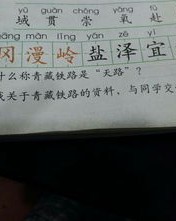 yù guàn chóng yǎng fù
域 贯 崇 氧 赴
gāng màn lǐng yán zé yí
冈 漫 岭 盐 泽 宜
什么称青藏铁路是“天路”?
关于青藏铁路的资料，与同学交